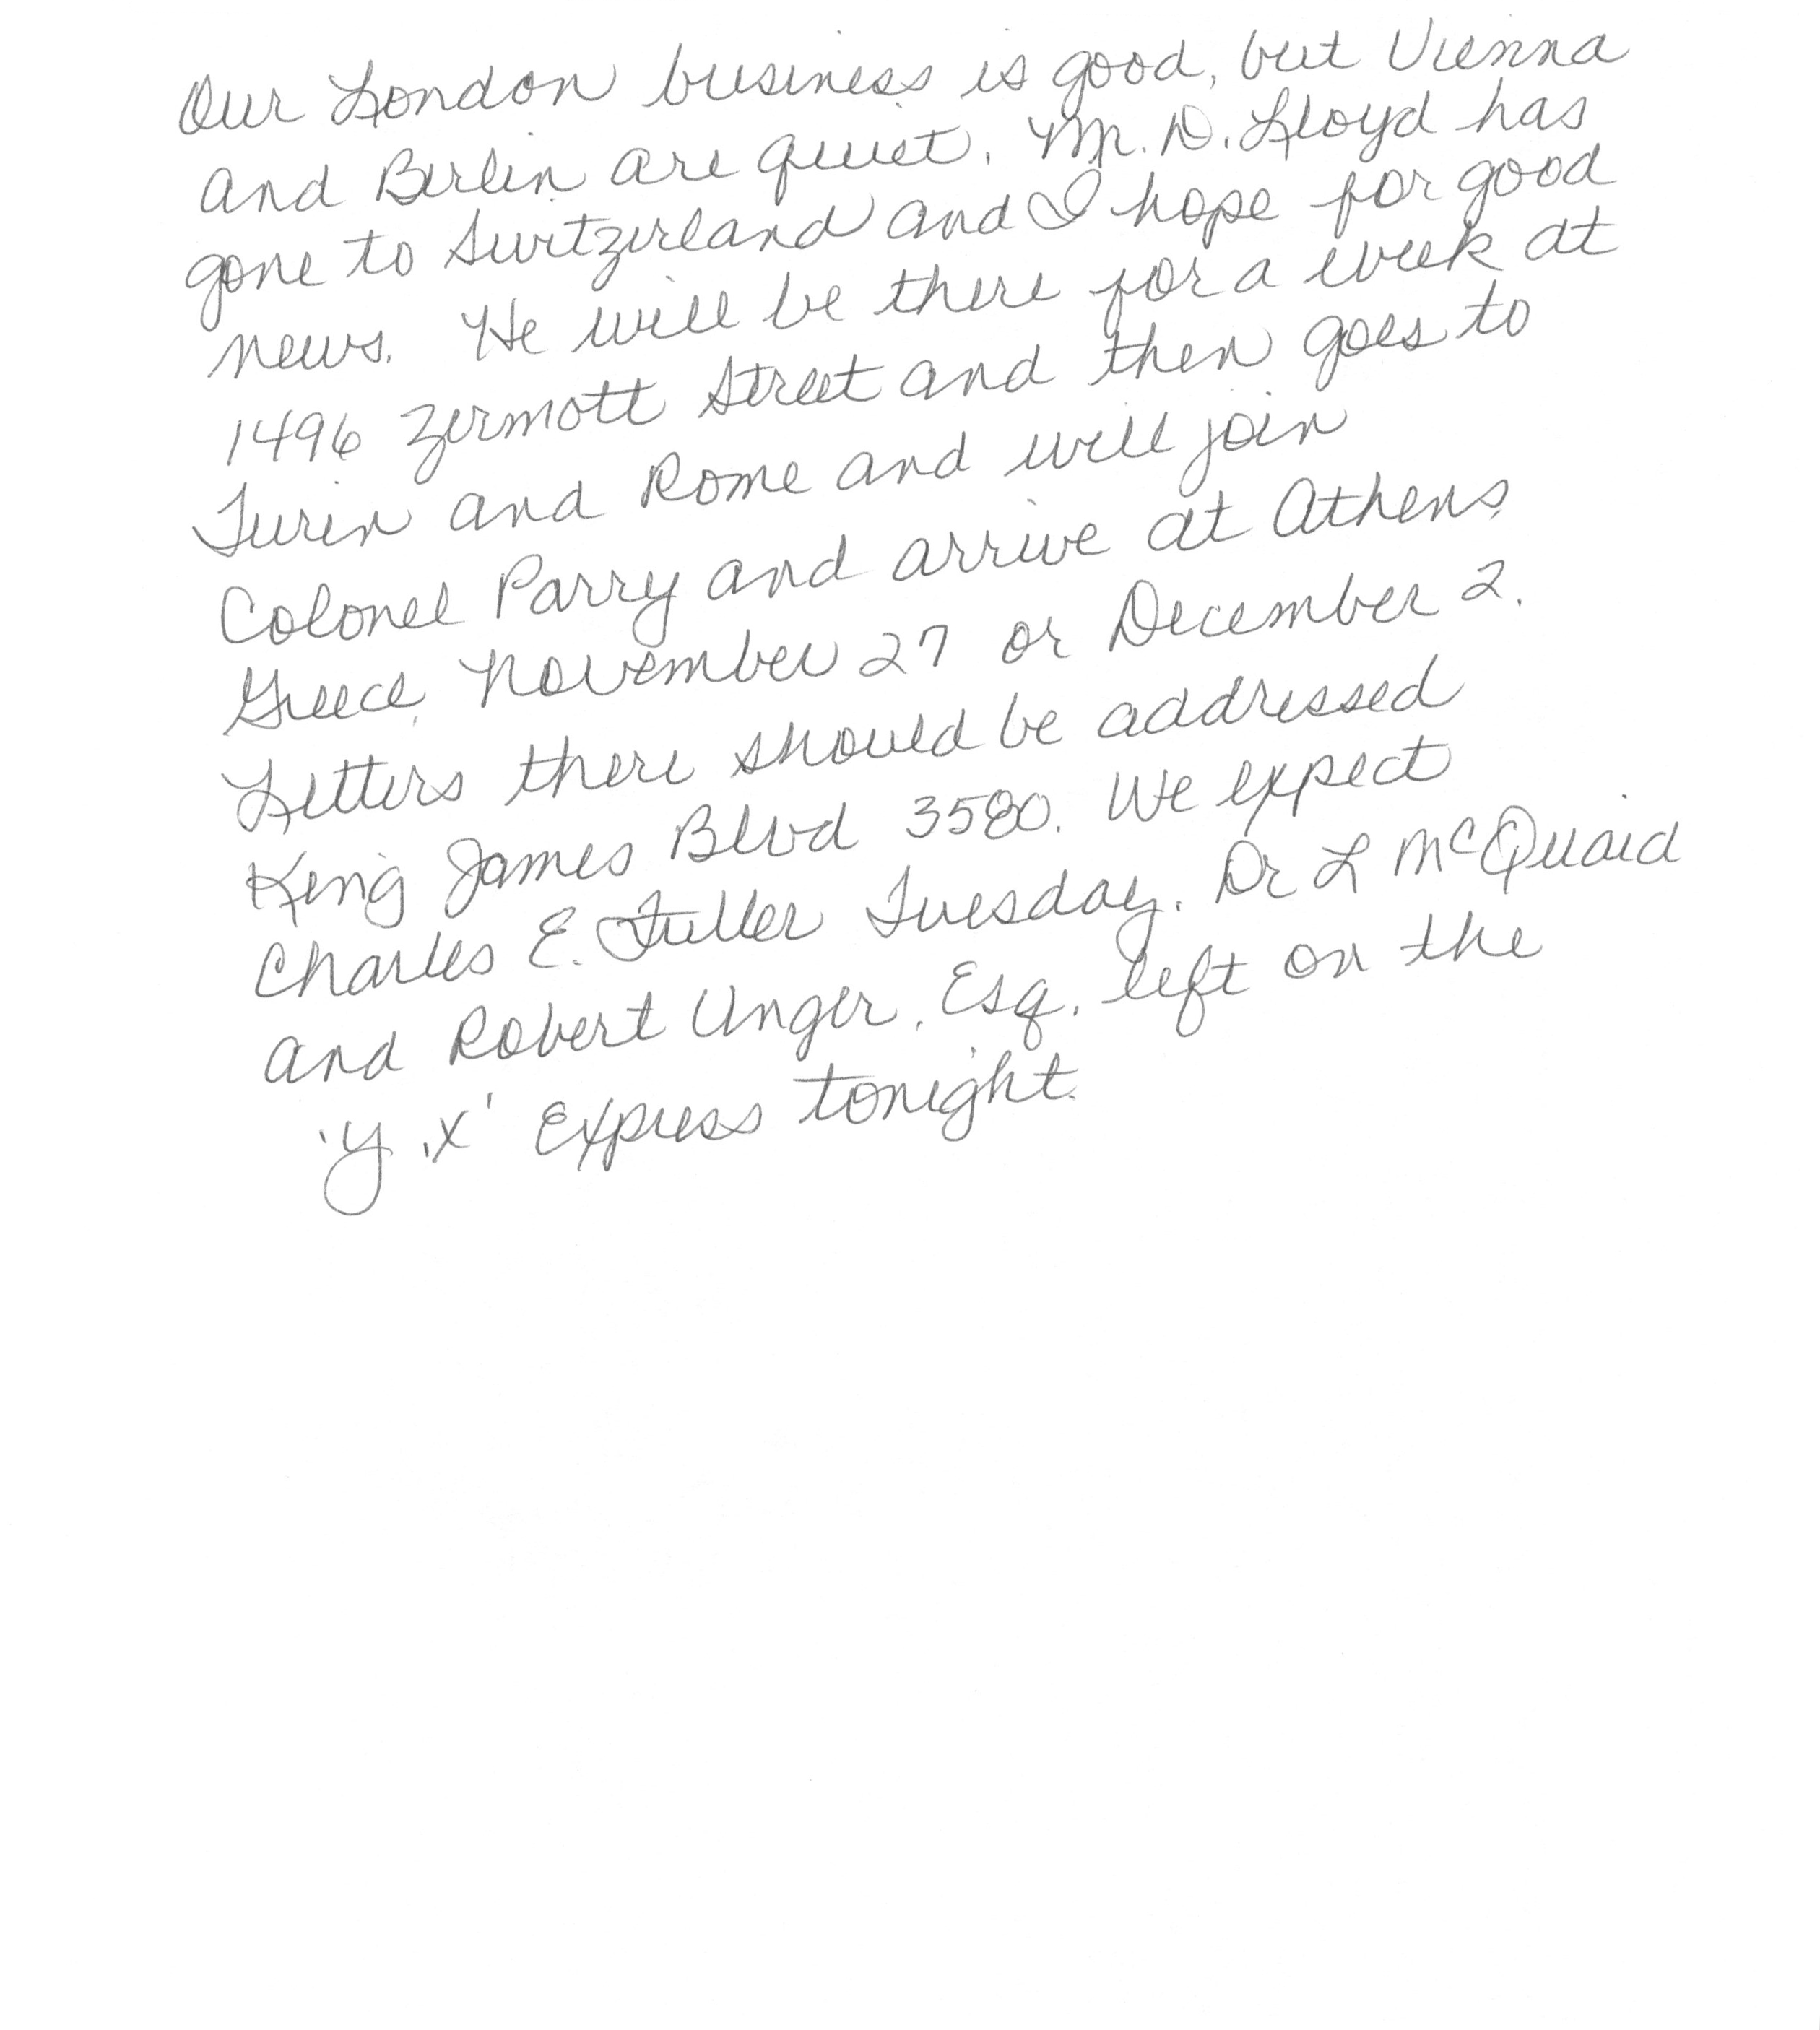 Our London business is good, but Vienna
and Berlin are quiet. Mr. D. Lloyd has
gone to Switzerland and I hope for good
news. He will be there for a week at
1496 Zermott Street and then goes to
Turin and Rome and will join
Colonel Parry and arrive at Athens,
Greece, November 27 or December 2.
Letters there should be addressed
King James Blvd 3580. We expect
Charles E. Fuller Tuesday. Dr L McQuaid
and Robert Unger, Esq. left on the
'Y.X' Express tonight.